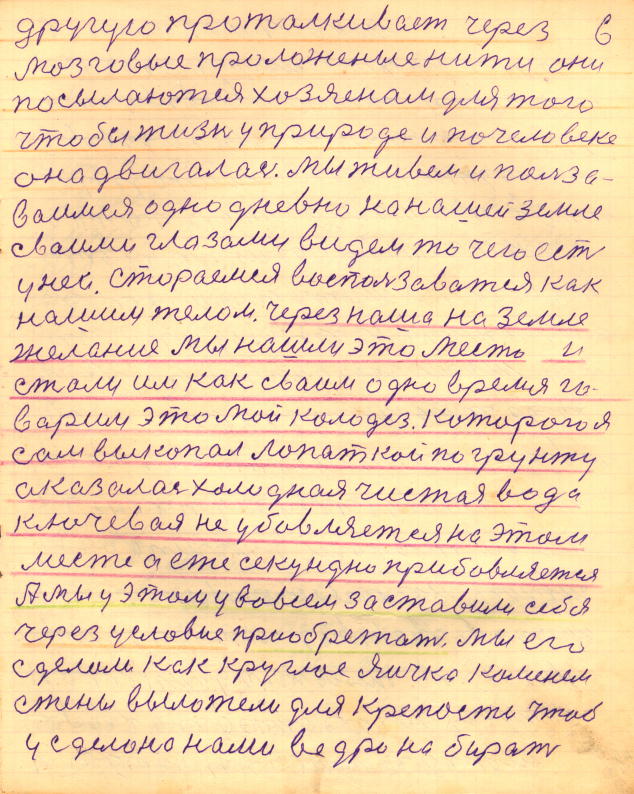 другуго проталкивает через 6
мозговые проложеные нити они
посылаются хозяенам для того
чтобы жизн у природе и по человеке
она двигалас. Мы живем и полза-
ваимся одно дневно на нашей Земле
сваими глазами видем то чего ест
у ней. Стораемся воспользаватся как
нашим телом. Через наша на Земле
желание мы нашли это Месть и
стали им как сваим одно время га-
варим это мой колодез. Которого я
сам выкопал лопаткой по грунту
аказалас холодная чистая вода
ключевая не убовляется на этом
месте а сте секундно прибовляется
А мы у этом у вовсем заставили себя
через условие приобретат. Мы его
сделали как круглое яичка каменем
стены выложели для крепости чтоб
у сделоно нами ведро на бират